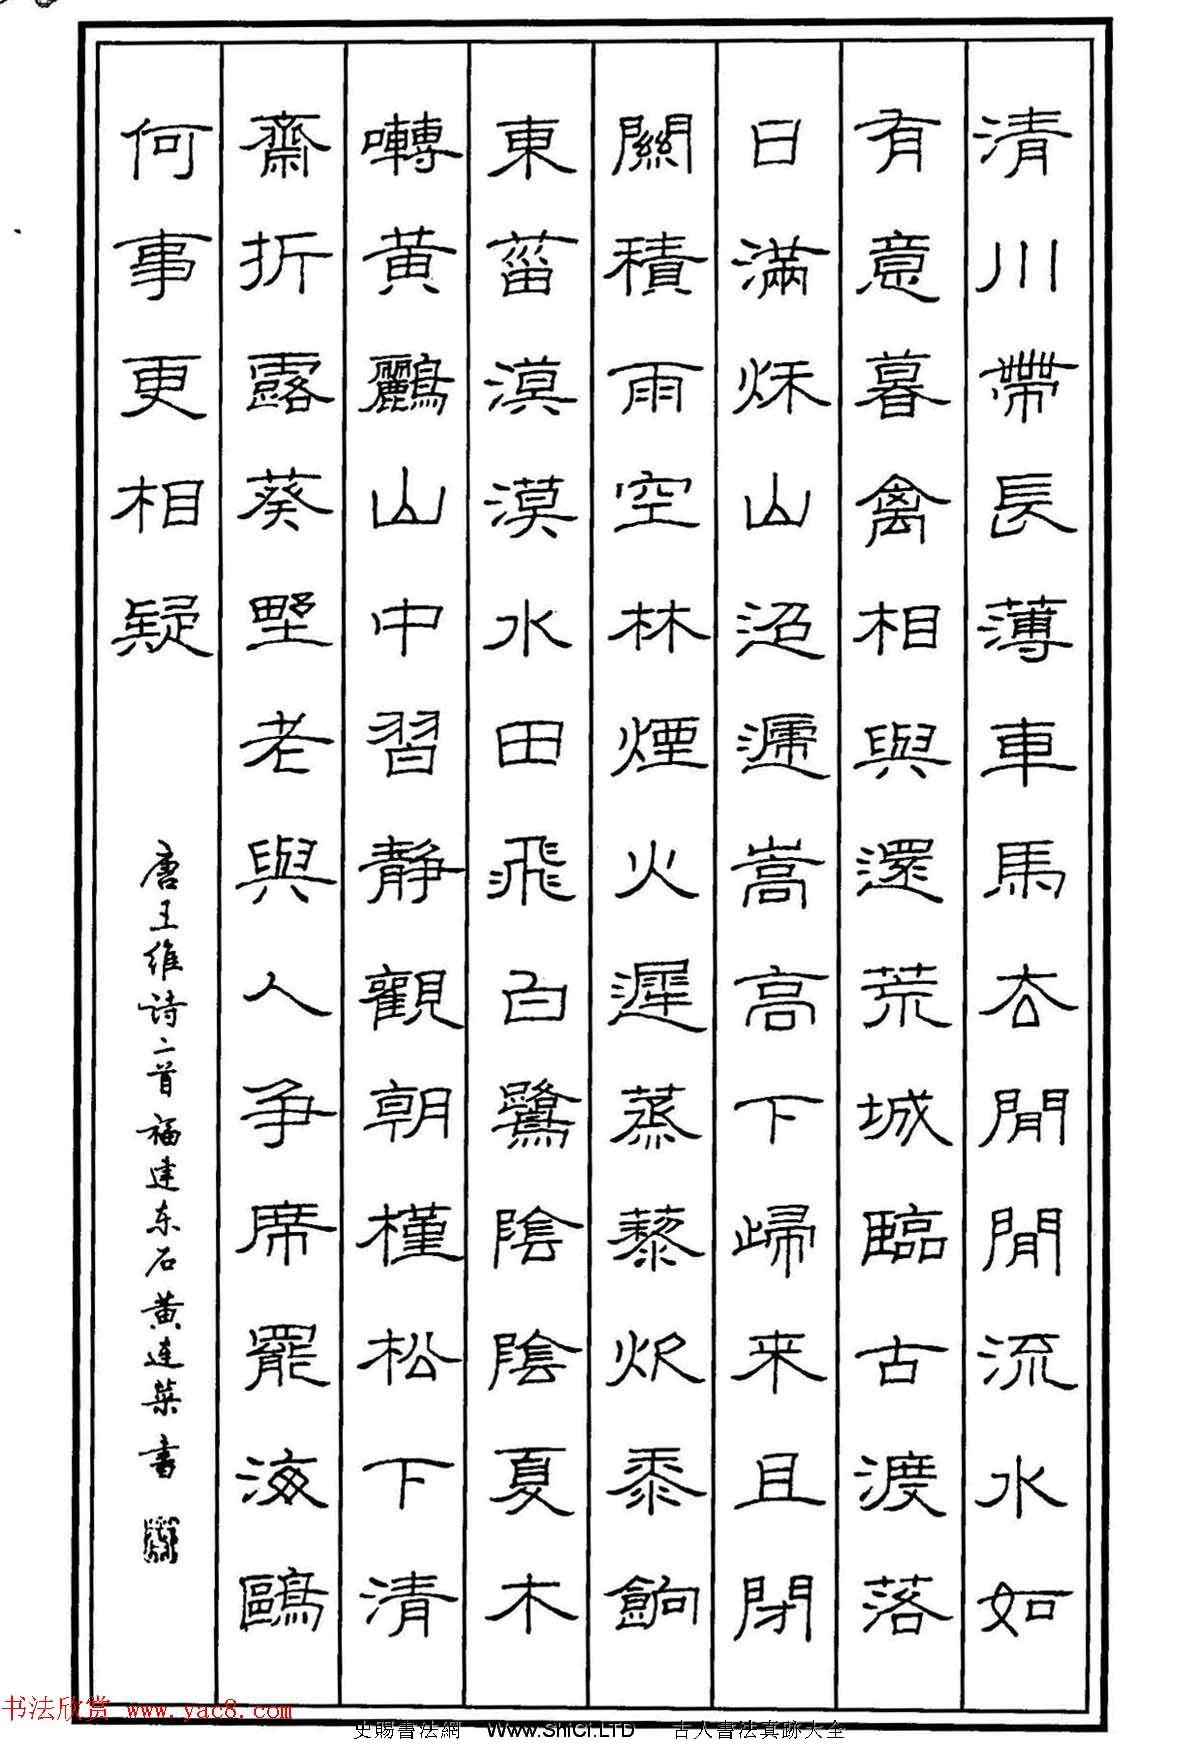 清川帶長薄車馬去閒閒流水如
有意暮禽相與還荒城臨古渡落
日滿秌山迢遞嵩高下歸来且閉
關積雨空林煙火遲蒸藜炊黍餉
東菑漠漠水田飛白鷺陰陰夏木
囀黃鸝山中習靜觀朝槿松下清
齋折露葵野老與人争席罷海鷗
何事更相疑
唐王维诗二首福建东石黄连葉书
书法欣赏 www.yac8.com
史賜書法網 www.ShiCi.LTD 古人書法真跡大全